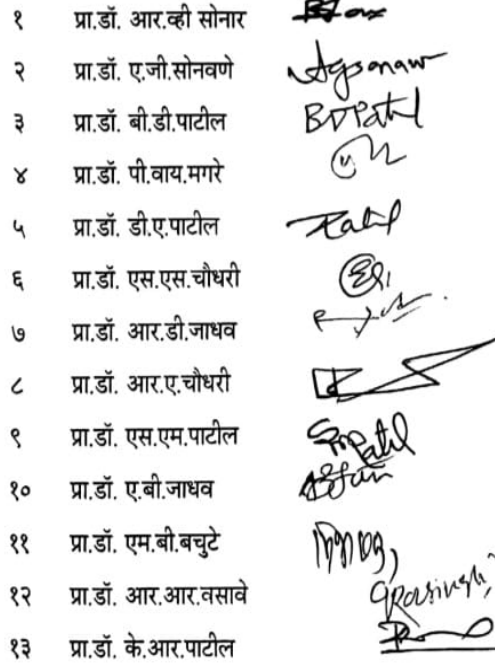 १ प्रा.डॉ. आर.व्ही सोनार
२ प्रा.डॉ. ए.जी.सोनवणे
३ प्रा.डॉ. बी.डी.पाटील BDPatil
४ प्रा.डॉ. पी.वाय.मगरे
५ प्रा.डॉ. डी.ए.पाटील
६ प्रा.डॉ. एस.एस.चौधरी
७ प्रा.डॉ. आर.डी.जाधव
८ प्रा.डॉ. आर.ए.चौधरी
९ प्रा.डॉ. एस.एम.पाटील SMPatil
१० प्रा.डॉ. ए.बी.जाधव
११ प्रा.डॉ. एम.बी.बचुटे
१२ प्रा.डॉ. आर.आर.वसावे
१३ प्रा.डॉ. के.आर.पाटील